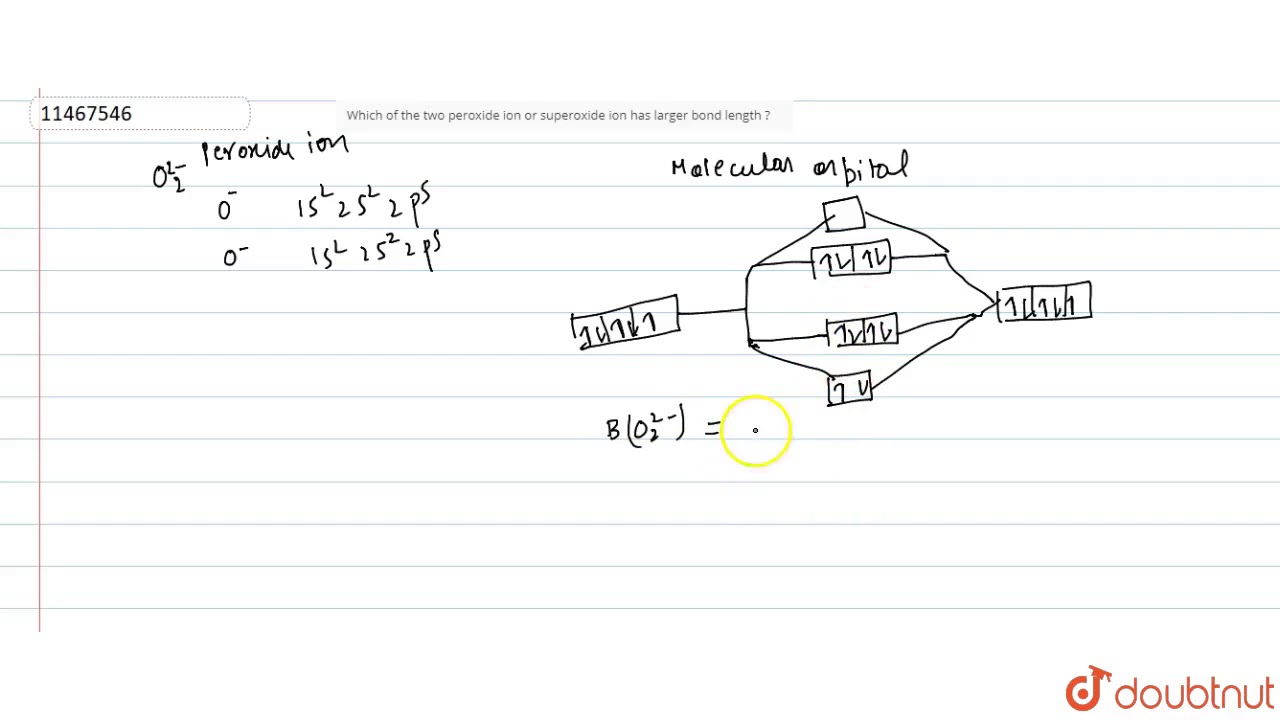 11467546
Which of the two peroxide ion or superoxide ion has larger bond length ?
O₂²⁻ Peroxide ion
O⁻ 1s² 2s² 2p⁵
O⁻ 1s² 2s² 2p⁵
Molecular orbital
B(O₂²⁻) =
doubtnut